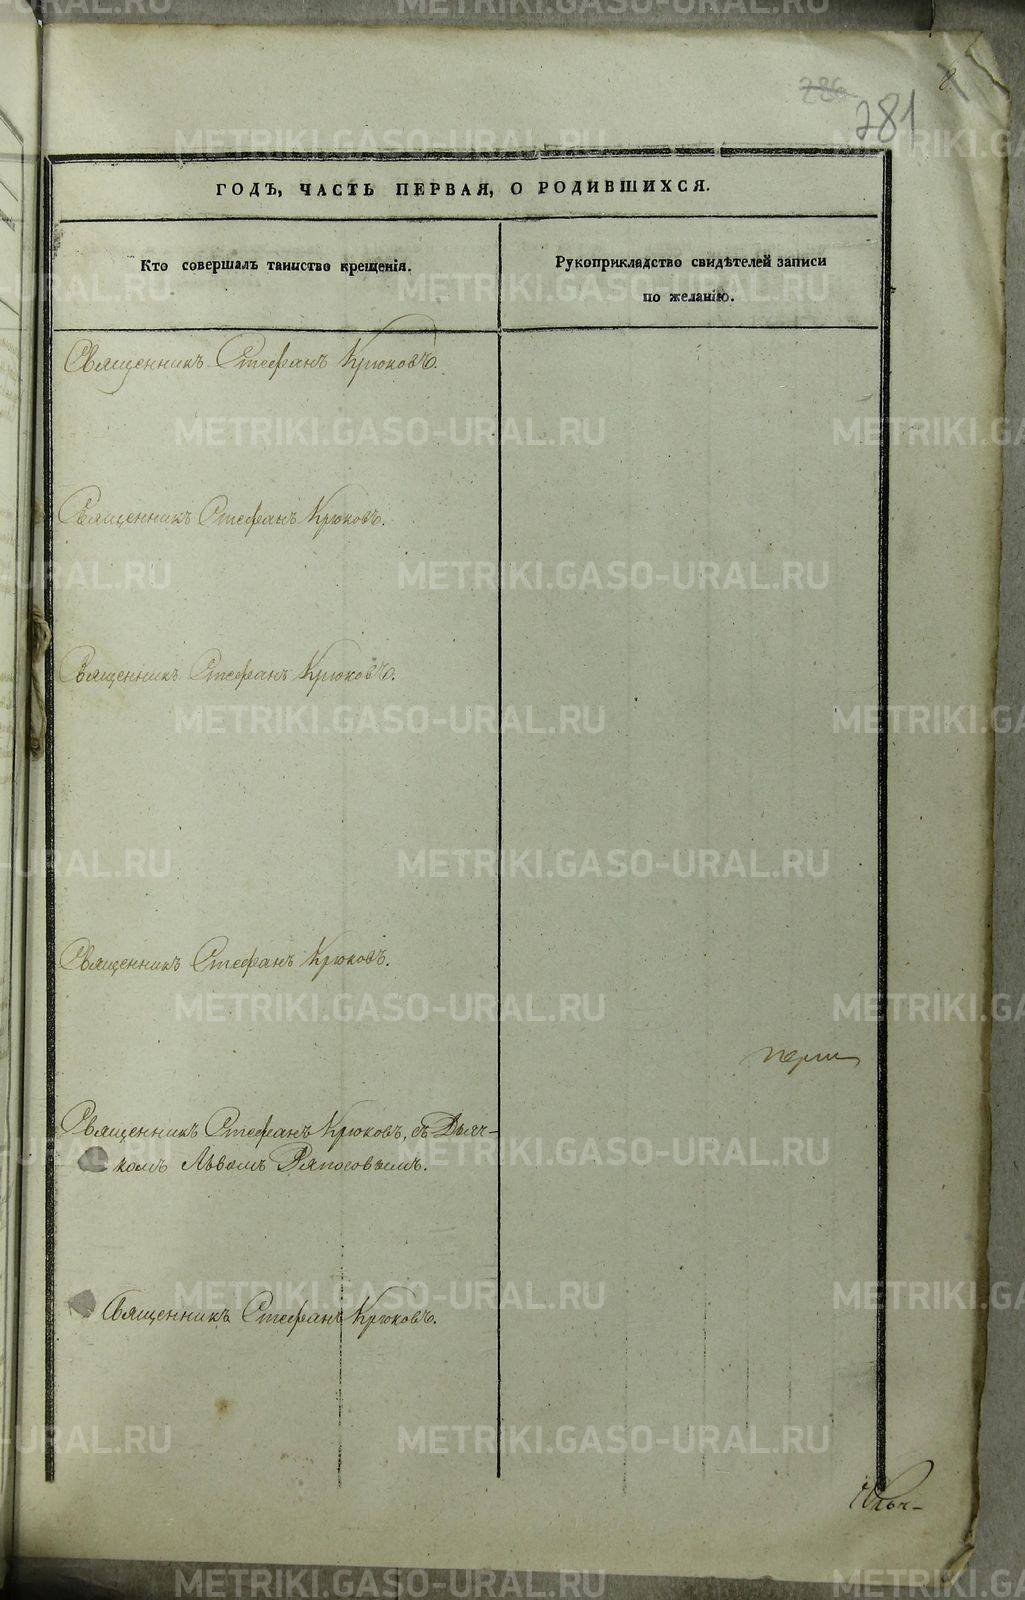 286
281
8.
ГОДЪ, ЧАСТЬ ПЕРВАЯ, О РОДИВШИХСЯ.
Кто совершалъ таинство крещенія.
Рукоприкладство свидѣтелей записи
по желанію.
Священникъ Стефанъ Крюковъ.
Священникъ Стефанъ Крюковъ.
Священникъ Стефанъ Крюковъ.
Священникъ Стефанъ Крюковъ.
Священникъ Стефанъ Крюковъ, съ Дьяч-
комъ Львомъ Ряпосовымъ.
Священникъ Стефанъ Крюковъ.
METRIKI.GASO-URAL.RU